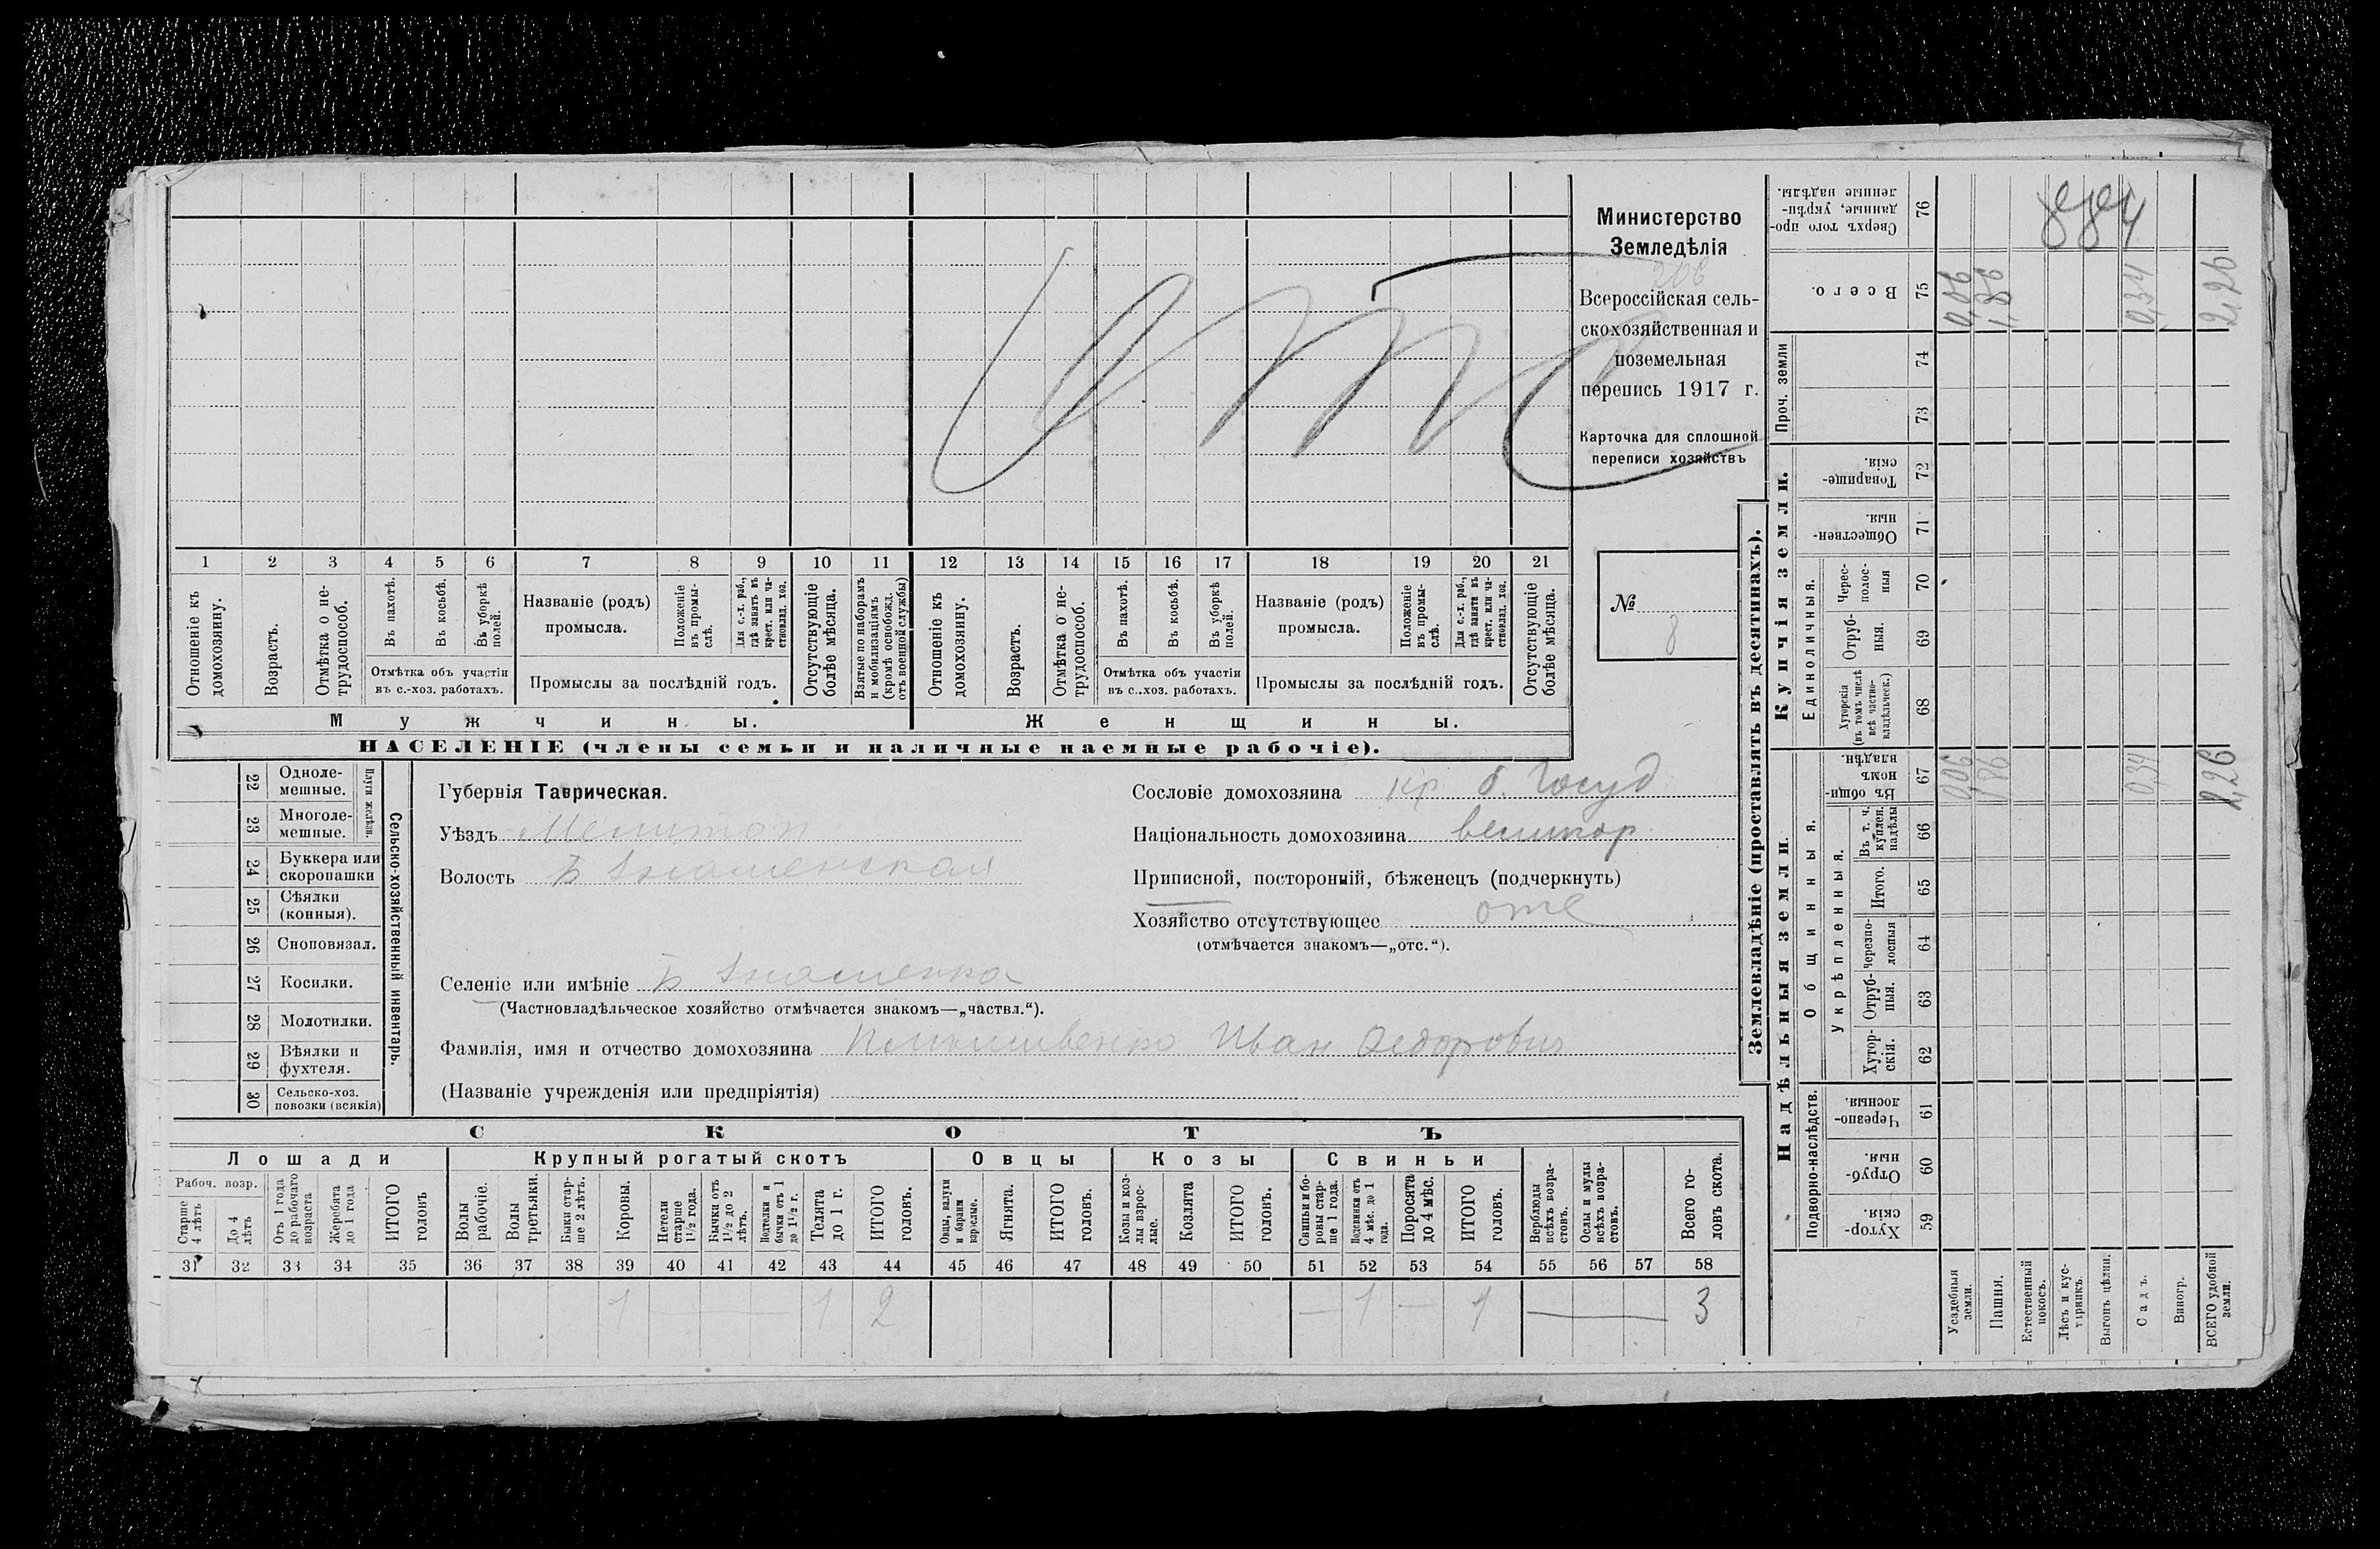 Министерство
Земледѣлія
Всероссійская сель-
скохозяйственная и
поземельная
перепись 1917 г.
Карточка для сплошной
переписи хозяйствъ
№
8
884
1 2 3 4 5 6 7 8 9 10 11 12 13 14 15 16 17 18 19 20 21
Отношеніе къ домохозяину.
Возрастъ.
Отмѣтка о не-
трудоспособ.
Въ пахотѣ.
Въ косьбѣ.
Въ уборкѣ полей.
Отмѣтка объ участіи
въ с.-хоз. работахъ.
Названіе (родъ)
промысла.
Положеніе въ промы-
слѣ.
Для с.-х. раб.,
гдѣ занятъ въ
крест. или ча-
стновлад. хоз.
Промыслы за послѣдній годъ.
Отсутствующіе
болѣе мѣсяца.
Взятые по наборамъ
и мобилизаціямъ
(кромѣ освобожд.
отъ военной службы)
Отношеніе къ
домохозяину.
Возрастъ.
Отмѣтка о не-
трудоспособ.
Въ пахотѣ.
Въ косьбѣ.
Въ уборкѣ
полей.
Отмѣтка объ участіи
въ с.-хоз. работахъ.
Названіе (родъ)
промысла.
Положеніе
въ промы-
слѣ.
Для с.-х. раб.,
гдѣ занята въ
крест. или ча-
стновлад. хоз.
Промыслы за послѣдній годъ.
Отсутствующіе
болѣе мѣсяца.
Мужчины.
Женщины.
НАСЕЛЕНІЕ (члены семьи и наличные наемные рабочіе).
Сельско-хозяйственный инвентарь.
Плуги желѣзн.
22 Одноле-
мешные.
23 Многоле-
мешные.
24 Буккера или
скоропашки
25 Сѣялки
(конныя).
26 Сноповязал.
27 Косилки.
28 Молотилки.
29 Вѣялки и
фухтеля.
30 Сельско-хоз.
повозки (всякія)
Губернія Таврическая.
Уѣздъ Мелитоп
Волость Б Знаменская
Сословіе домохозяина кр. б. Госуд
Національность домохозяина великор.
Приписной, посторонній, бѣженецъ (подчеркнуть)
Хозяйство отсутствующее
(отмѣчается знакомъ—„отс.“).
Селеніе или имѣніе Б Знаменка
(Частновладѣльческое хозяйство отмѣчается знакомъ—„частвл.“).
Фамилія, имя и отчество домохозяина Иван Федорович
(Названіе учрежденія или предпріятія)
СКОТЪ
Лошади
Крупный рогатый скотъ
Овцы
Козы
Свиньи
Рабоч. возр.
Старше
4 лѣтъ
До 4
лѣтъ
Отъ 1 года
до рабочаго
возраста
Жеребята
до 1 года
ИТОГО
головъ
Волы
рабочіе.
Волы
третьяки.
Быки стар-
ше 2 лѣтъ.
Коровы.
Нетели
старше
1½ года.
Бычки отъ
1½ до 2
лѣтъ.
Подтелки и
бычки отъ 1
до 1½ г.
Телята
до 1 г.
ИТОГО
головъ.
Овцы, валухи
и бараны
взрослые.
Ягнята.
ИТОГО
головъ.
Козы и коз-
лы взрос-
лые.
Козлята
ИТОГО
головъ.
Свиньи и бо-
ровы стар-
ше 1 года.
Подсвинки отъ
4 мѣс. до 1
года.
Поросята
до 4 мѣс.
ИТОГО
головъ.
Верблюды
всѣхъ возра-
стовъ.
Ослы и мулы
всѣхъ возра-
стовъ.
Всего го-
ловъ скота.
31 32 33 34 35 36 37 38 39 40 41 42 43 44 45 46 47 48 49 50 51 52 53 54 55 56 57 58
1 — 1 2 — 1 — 1 — 3
Землевладѣніе (проставлять въ десятинахъ).
Надѣльныя земли.
Купчія земли.
Проч. земли
Подворно-наслѣдств.
Общинныя.
Укрѣпленныя.
Единоличныя.
Сверхъ того про-
данные, укрѣп-
ленные надѣлы.
76
Всего.
75
74
73
Товарище-
скія.
72
Обществен-
ныя.
71
Черес-
полос-
ныя
70
Отруб-
ныя.
69
Хуторскія
(въ томъ числѣ
всѣ частно-
владѣльческ.)
68
Въ общи-
номъ
владѣн.
67
Въ т. ч.
куплен.
надѣлы
66
Итого.
65
Черезпо-
лосныя
64
Отруб-
ныя.
63
Хутор-
скія.
62
Черезпо-
лосныя.
61
Отруб-
ныя.
60
Хутор-
скія.
59
Усадебныя
земли.
Пашня.
Естественный
покосъ.
Лѣсъ и кус-
тарникъ.
Выгонъ цѣлин.
Садъ.
Виногр.
ВСЕГО удобной
земли.
0,06 1,86 0,34 2,26
0,06 1,86 0,34 2,26